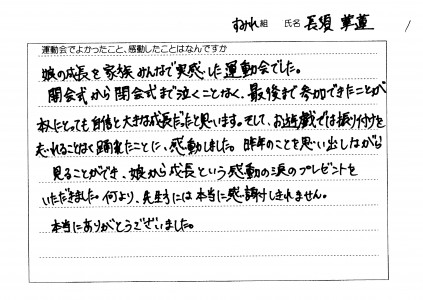 すみれ組 氏名 長須
運動会でよかったこと、感動したことはなんですか
娘の成長を家族みんなで実感した運動会でした。
開会式から閉会式まで泣くことなく、最後まで参加できたことが
本人にとっても自信と大きな成長だったと思います。そして、お遊戯では振り付けを
忘れることなく踊れたことに、感動しました。昨年のことを思い出しながら
見ることができ、娘から成長という感動の涙のプレゼントを
いただきました。何より、先生方には本当に感謝しきれません。
本当にありがとうございました。